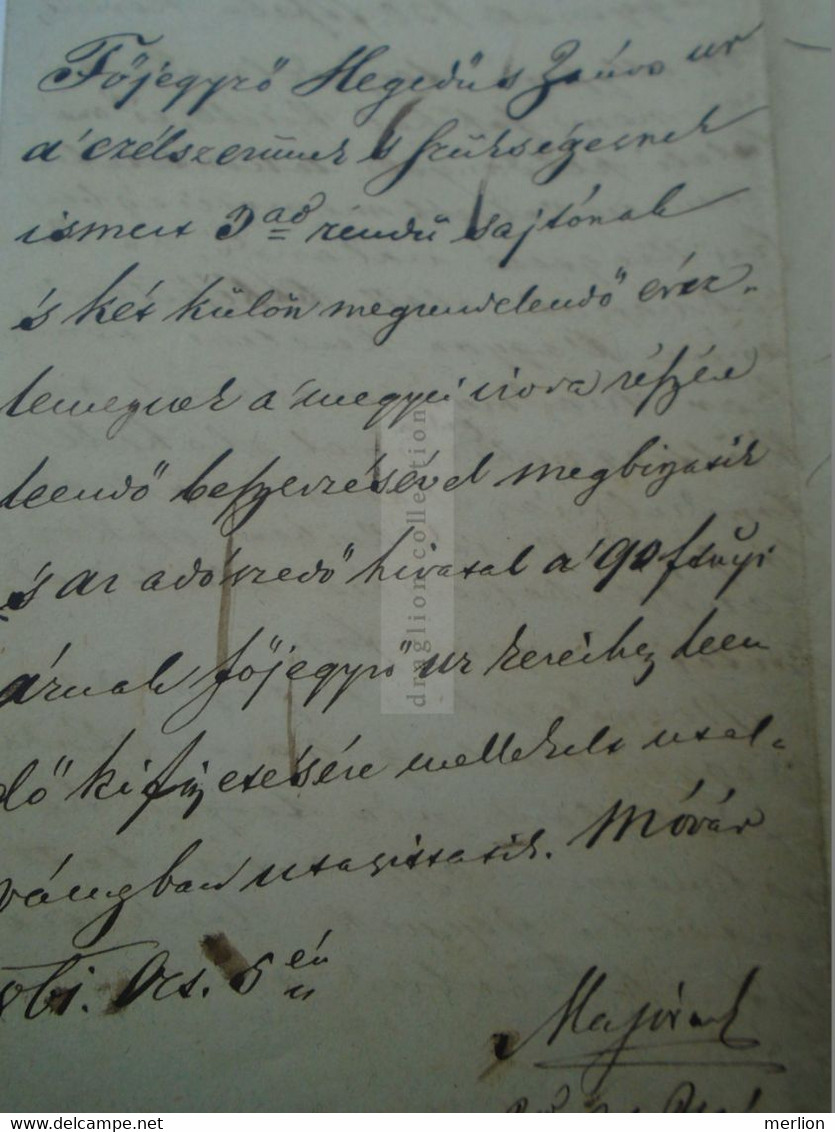 Főjegyző Hegedűs János ur
a' czélszerűnek s szükségesnek
ismert 3ad rendű sajtónak
és két külön megrendelendő ércz-
lemeznek a' megyei iroda részére
leendő beszerzésével megbizatik
és az adószedő hivatal a' 90 ftnyi
árnak főjegyző ur kezeihez leen
dő kifizetésére mellékelt utal-
ványban utasittatik. Móvár
861. Oct. 5én
dragliom collection
delcampe.net
merlion